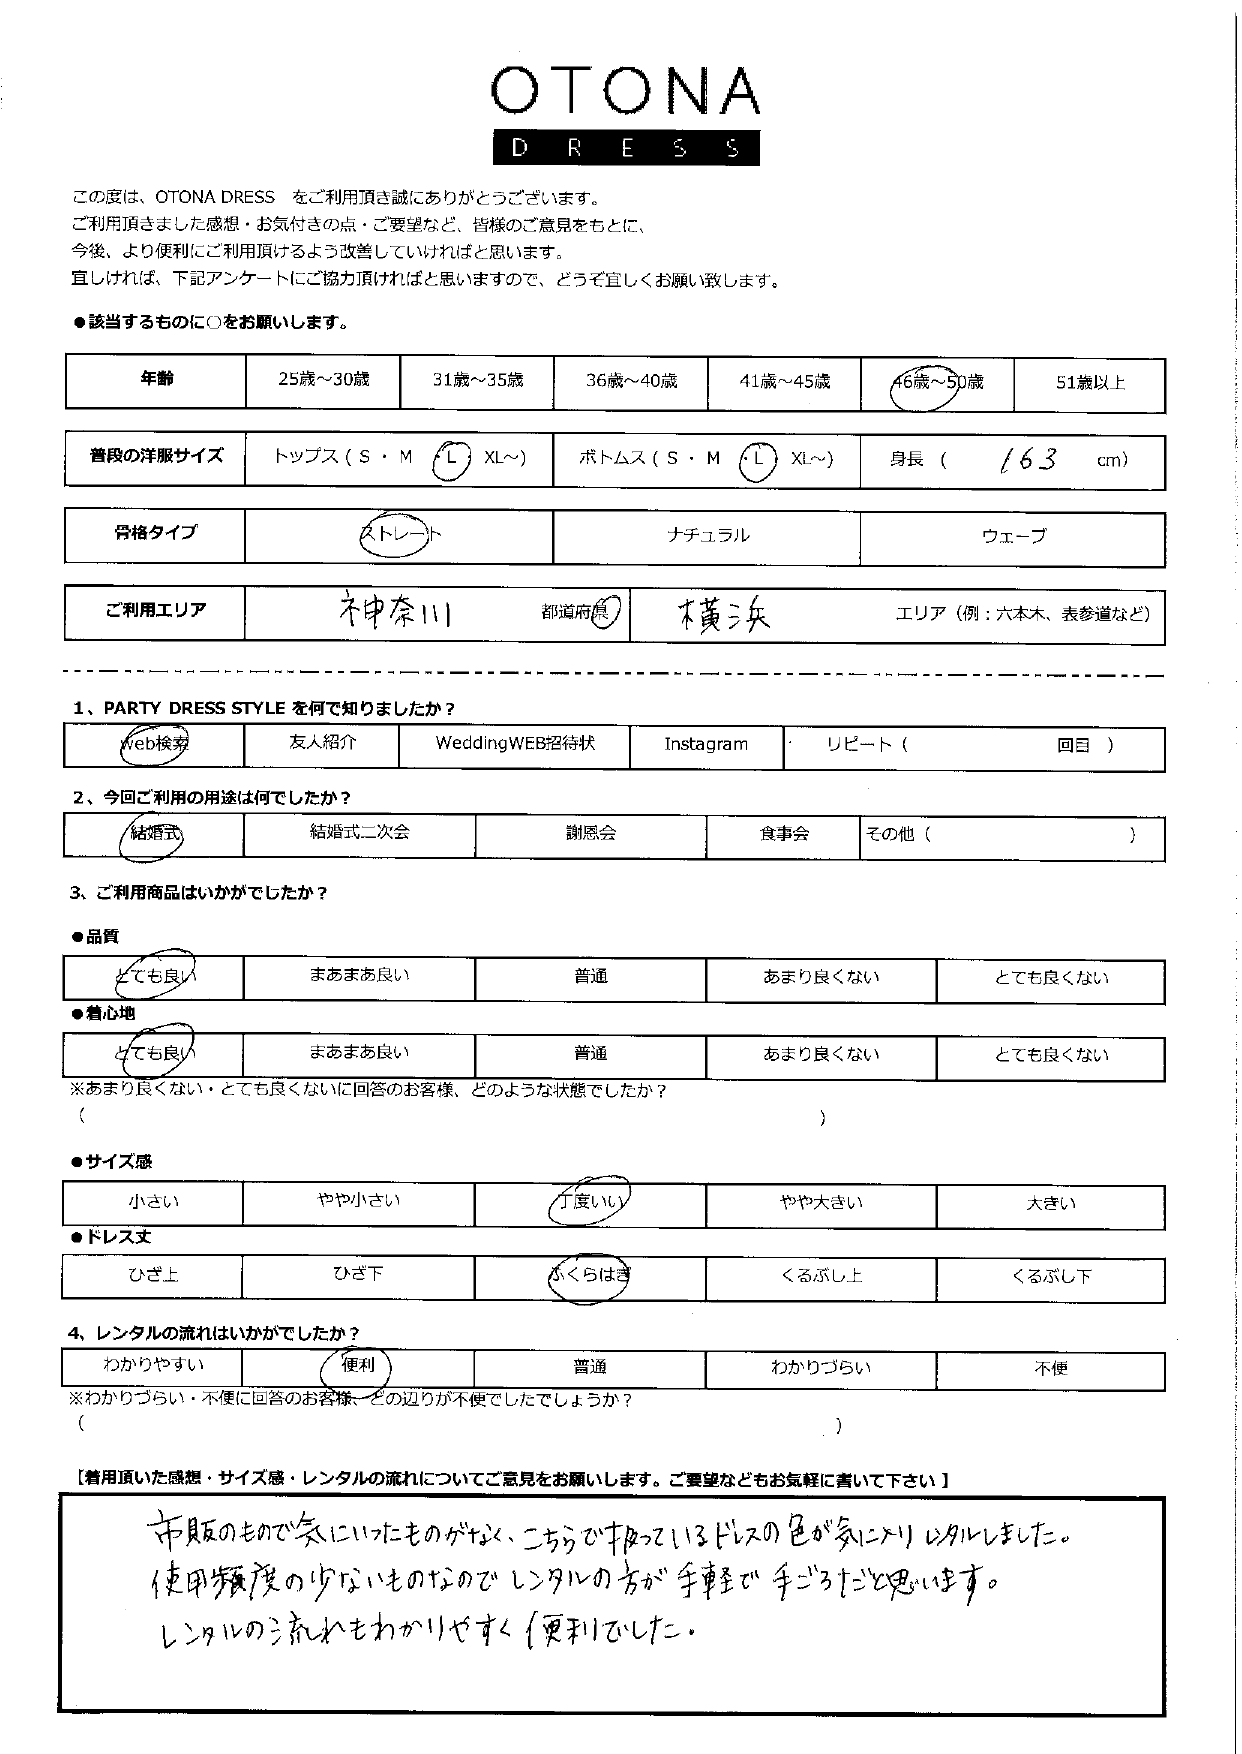 OTONA
DRESS
この度は、OTONA DRESS　をご利用頂き誠にありがとうございます。
ご利用頂きました感想・お気付きの点・ご要望など、皆様のご意見をもとに、
今後、より便利にご利用頂けるよう改善していければと思います。
宜しければ、下記アンケートにご協力頂ければと思いますので、どうぞ宜しくお願い致します。
●該当するものに○をお願いします。
年齢 25歳～30歳 31歳～35歳 36歳～40歳 41歳～45歳 46歳～50歳 51歳以上
普段の洋服サイズ トップス ( S ・ M ・ L XL～) ボトムス ( S ・ M ・ L XL～) 身長 ( 163 cm)
骨格タイプ ストレート ナチュラル ウェーブ
ご利用エリア 神奈川 都道府県 横浜 エリア（例：六本木、表参道など）
1、PARTY DRESS STYLE を何で知りましたか？
Web検索 友人紹介 WeddingWEB招待状 Instagram リピート ( 回目 )
2、今回ご利用の用途は何でしたか？
結婚式 結婚式二次会 謝恩会 食事会 その他 ( )
3、ご利用商品はいかがでしたか？
●品質
とても良い まあまあ良い 普通 あまり良くない とても良くない
●着心地
とても良い まあまあ良い 普通 あまり良くない とても良くない
※あまり良くない・とても良くないに回答のお客様、どのような状態でしたか？
( )
●サイズ感
小さい やや小さい 丁度いい やや大きい 大きい
●ドレス丈
ひざ上 ひざ下 ふくらはぎ くるぶし上 くるぶし下
4、レンタルの流れはいかがでしたか？
わかりやすい 便利 普通 わかりづらい 不便
※わかりづらい・不便に回答のお客様、どの辺りが不便でしたでしょうか？
( )
[着用頂いた感想・サイズ感・レンタルの流れについてご意見をお願いします。ご要望などもお気軽に書いて下さい ]
市販のもので気にいったものがなく、こちらで扱っているドレスの色が気に入りレンタルしました。
使用頻度の少ないものなのでレンタルの方が手軽で手ごろだと思います。
レンタルの流れもわかりやすく便利でした.